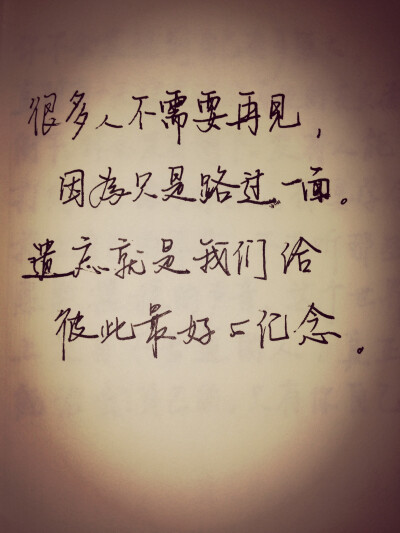 很多人不需要再见,
因为只是路过一面。
遗忘就是我们给
彼此最好的纪念。